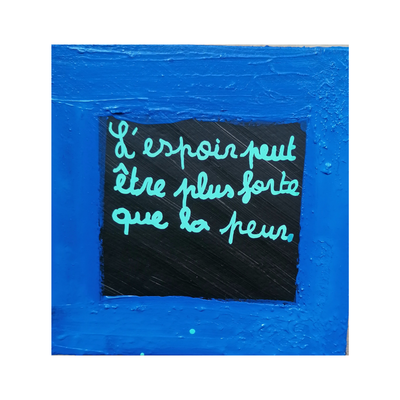 L'espoir peut
être plus forte
que la peur.